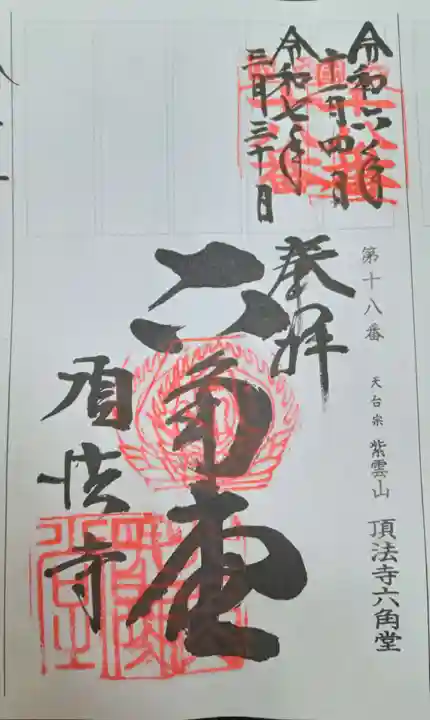 第十八番 天台宗 紫雲山 頂法寺六角堂
令和六年
十一月四日
令和七年
三月三十日
奉拝
六角堂
頂法寺